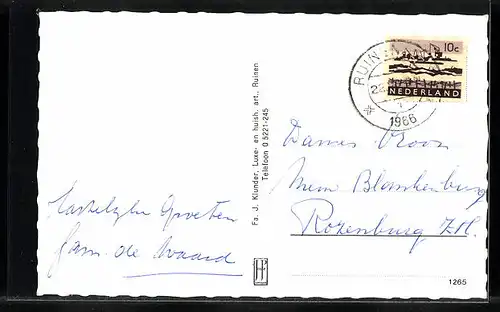 Hartelijke Groeten
fam. de Waard
Fa. J. Klunder, Luxe- en huish. art., Ruinen
Telefoon 0 5221-245
RUINEN
1966
10c
NEDERLAND
Dames
Blankenburg
Rozenburg Z.H.
1265